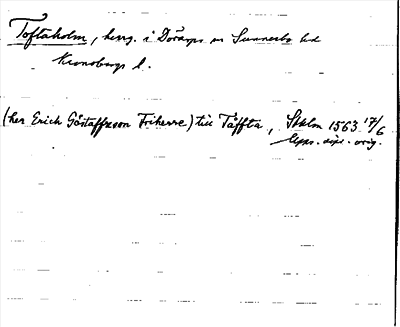 Toftaholm, herrg. i Dörarps sn Sunnerbo hd
Kronobergs l.
(her Erich Göstaffzson Friherre) till Tåffta, Sthlm 1563 17/6
Upps. dipl. orig.